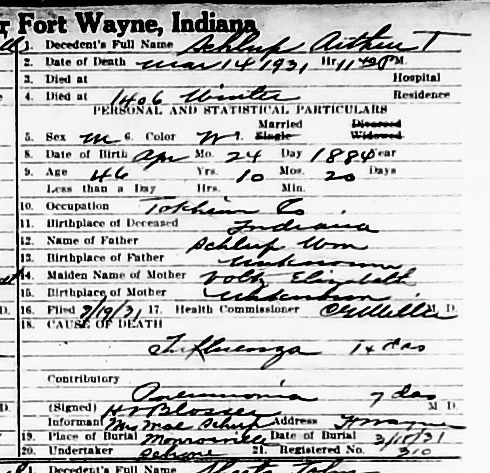 r Fort Wayne, Indiana
1. Decedent's Full Name Schlup Arthur T
2. Date of Death Mar 14 1931 Hr. 11 P M.
3. Died at Hospital
4. Died at 1406 Winter Residence
PERSONAL AND STATISTICAL PARTICULARS
Married Divorced
5. Sex M 6. Color W 7. Single Widowed
8. Date of Birth Apr Mo. 24 Day 1884 Year
9. Age 46 Yrs. 10 Mos. 20 Days
Less than a Day Hrs. Min.
10. Occupation Tokheim Co
11. Birthplace of Deceased Indiana
12. Name of Father Schlup Wm
13. Birthplace of Father Unknown
14. Maiden Name of Mother Voltz Elizabeth
15. Birthplace of Mother Unknown
16. Filed 3/19/31 17. Health Commissioner M. D.
18. CAUSE OF DEATH
Influenza 14 das
Contributory
Pneumonia 7 das
D. (Signed) H V Blosser M D.
Informant Mrs Mae Schlup Address Ft Wayne
19. Place of Burial Monroeville Date of Burial 3/18/31
20. Undertaker 21. Registered No. 310
1. Decedent's Full Name